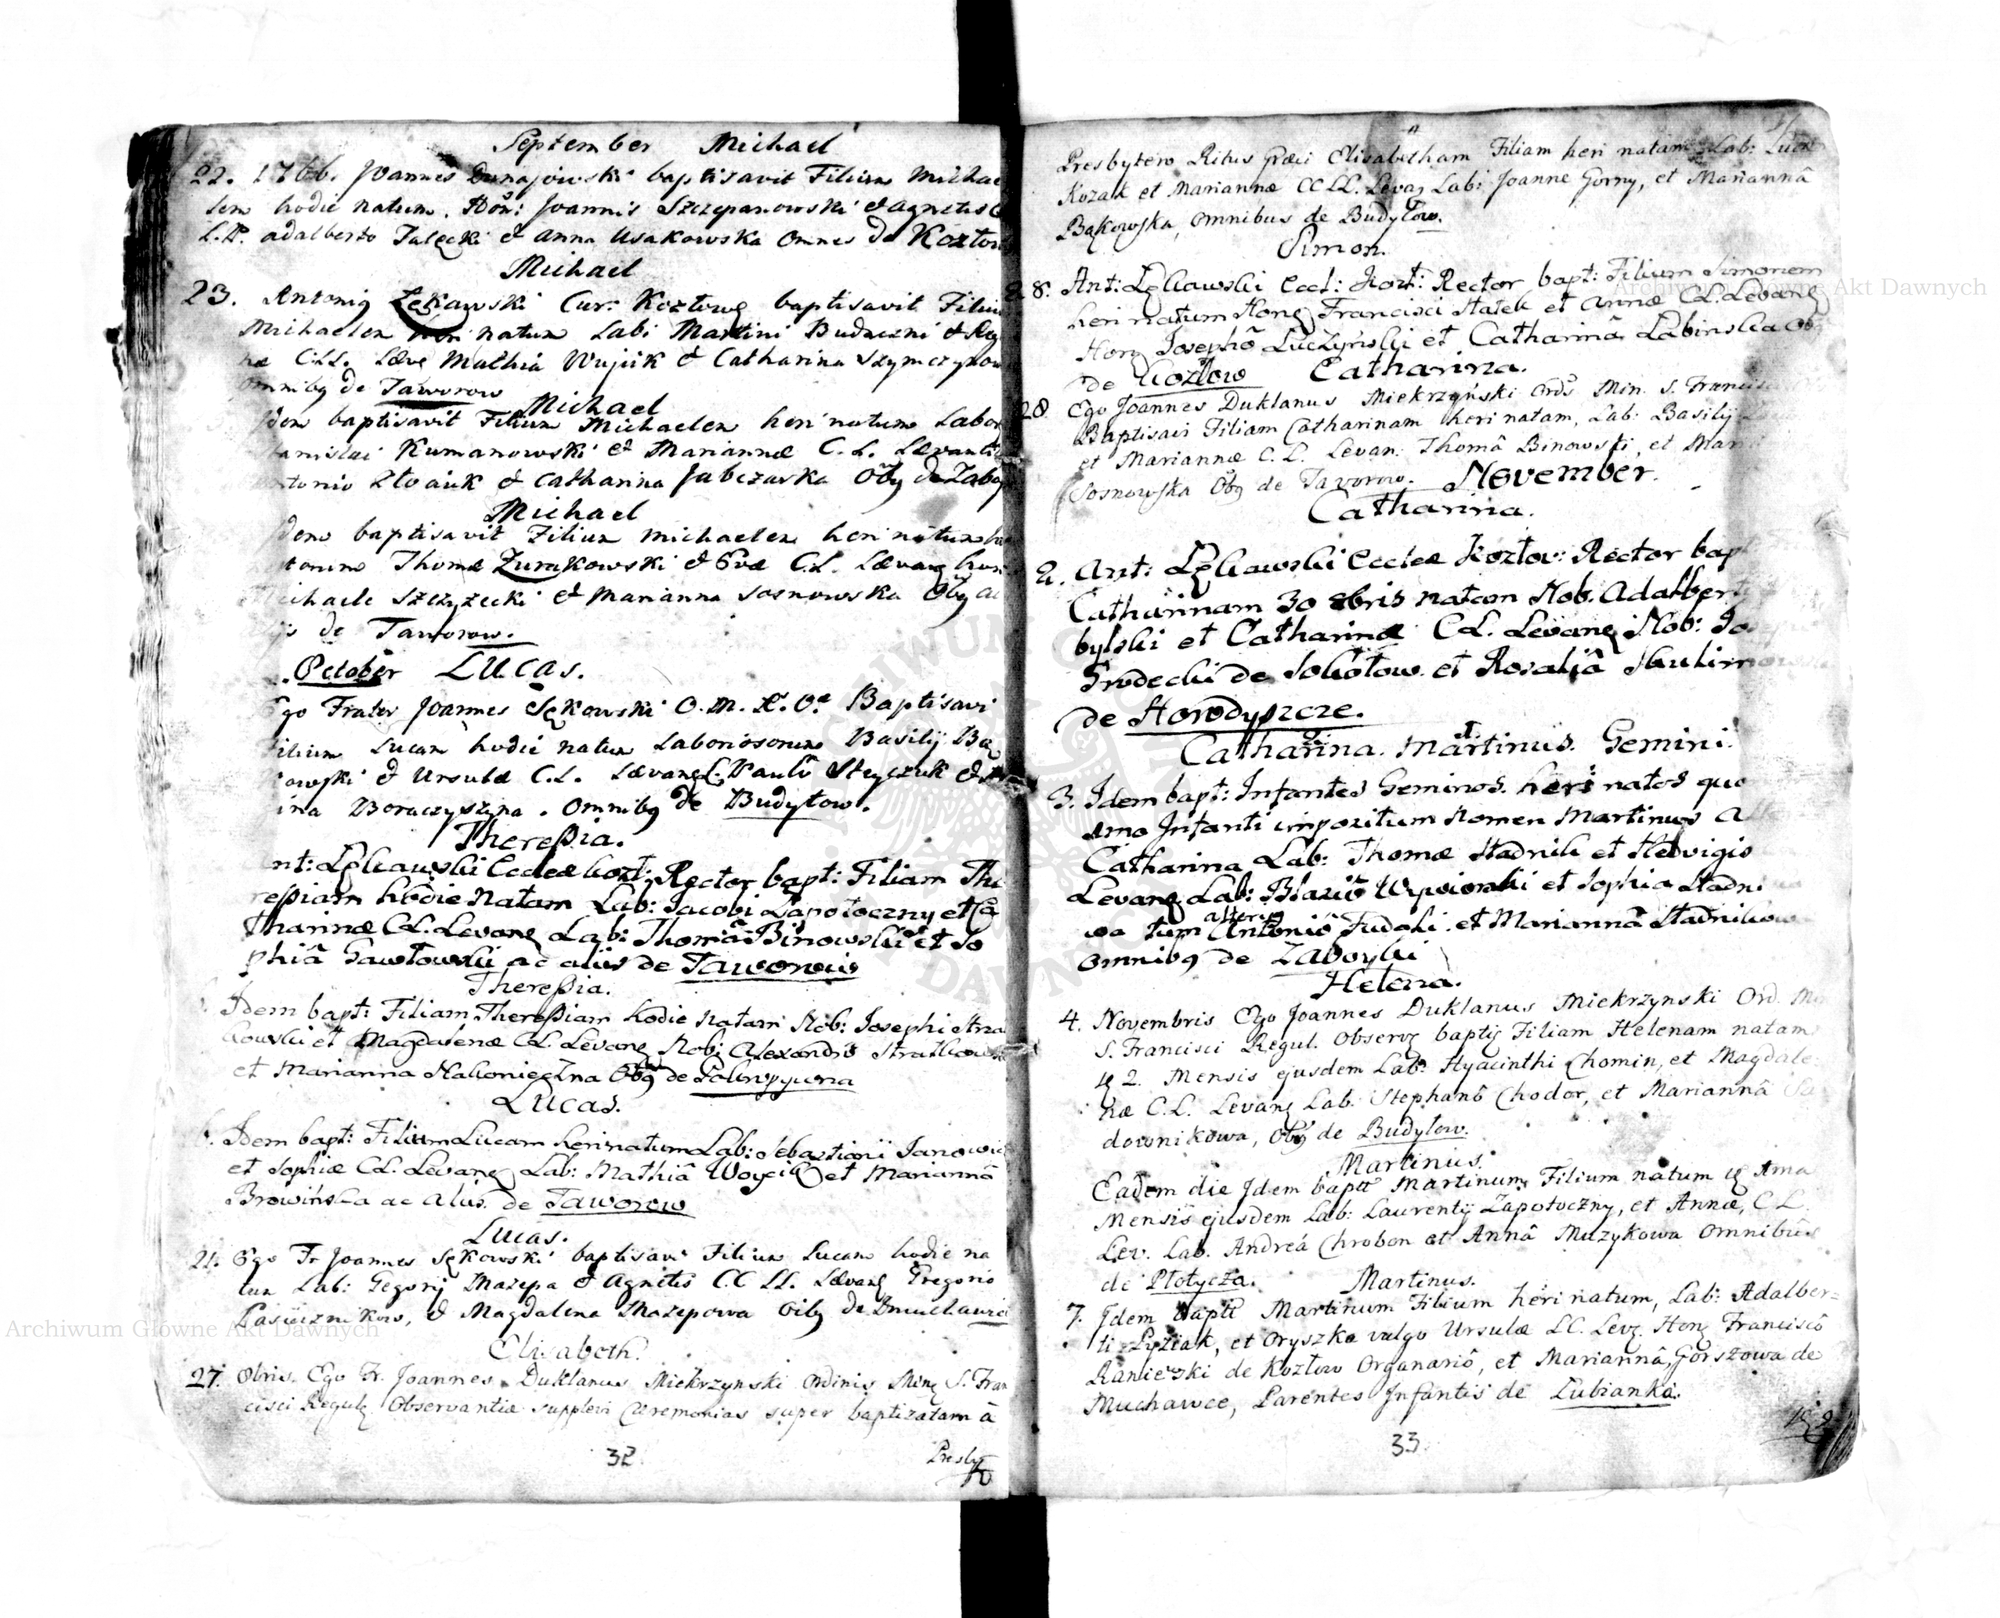 September Michael
22. 17 bb. Joannes Dunajowski baptisavit Filium Michae
lem hodie natum. Hon: Joannis Szczepanowski & Agnetis
L.P. Adalberto Jalecki & Anna Usakowska Omnes de Kozłow
Michael
23. Antonig Lękawski Cur. Kozłowę baptisavit Filiu
Michaelem heri natum Labi Martini Budneczni & Reg
næ C.LL. Læve Mathia Wujcik & Catharina Szymczykow
omnibg de Taworow
Michael
dem baptisavit Filium Michaelem heri natum Labor
tanislai Kumanowski & Mariannæ C. L. Lævantib
ntonio & Catharina Jabczarka Obg de Zaboy
Michael
dem baptisavit Filium Michaelem heri natum
Thomæ Zurakowski & Evæ C.L. Lævang
ichaele Szczyzecki & Marianna Sosnowska Obg
de Taworow.
October Lucas.
Ego Frater Joannes Sękowski O.M. Baptisavi
Filium Lucam hodie natum Laboriosorum Basilij Bą
kowski & Ursulæ C.L. Lævang L. Paulo Steyczuk &
ina Boraczyszyna. Omnibg de Budyłow.
Theresia.
Ant: Lękawski Eccleæ Kozł: Rector bapt: Filiam The
resiam hodie natam Lab: Jacobi Zapotoczny et Ca
tharinæ CL. Levang Lab: Thomâ Binowski et So
phiâ Gawłowski ac aliis de Taworow
Theresia.
Idem bapt: Filiam Theresiam hodie natam Nob: Josephi Stra
kowski et Magdalenæ CL. Levang Nob: Alexandro Stratkow
et Marianna Nakonieczna Obg de
Lucas.
Idem bapt: Filium Lucam heri natum Lab: Sebastiani Janowic
et Sophiæ CL. Levang Lab: Mathiâ Woycik et Mariannâ
Browińska ac aliis de Taworow
Lucas.
24. Ego Fr Joannes Sękowski baptisavi Filium Lucam hodie na
tum Lab: Gegorij Mazepa & Agnetis CC LL. Lævang Gregorio
Pasiecznikow, & Magdalena Mazepowa Oibg de Dmuchawic
Elisabeth.
27. Obris. Ego Fr. Joannes Duklanus Miekrzynski Ordinis Ming S. Fran
cisci Regulę Observantiæ supplevi Ceremonias super baptizatam à
32
Presby
Presbytero Ritus Græci Elisabetham Filiam heri natam Lab: Lucæ
Kozak et Mariannæ CC LL. Levag Lab: Joanne Gorny, et Mariannâ
Bąkowska, Omnibus de Budyłow.
Simon.
28. Ant: Lękawski Eccl: Kozł: Rector bapt: Filium Simonem
heri natum Hong Francisci Hałek et Annæ CL. Levang
Hong Josephô Luczyński et Catharinâ Labinska Obg
de Kozłow Catharina.
28. Ego Joannes Duklanus Miekrzyński Ords Min. S. Francisci
Baptisavi Filiam Catharinam heri natam, Lab: Basilij
et Mariannæ C. L. Levan. Thomâ Binowski, et Mar
Sosnowska Obg de Taworow. November.
Catharina.
2. Ant: Lękawski Eccleæ Kozłov: Rector bapt
Catharinam 30 8bris natam Nob. Adalberti
bylski et Catharinæ CL. Levang Nob: Jo
Grodecki de Sokołow et Rosaliâ Skulimowska
de Horodyszcze.
Catharina. et Martinus. Gemini.
3. Idem bapt: Infantes Geminos heri natos quo
imo Infanti impositum Nomen Martinus Alteri
Catharina Lab: Thomæ Stadnik et Hedvigis
Levang Lab: Blasiô Wysiorski et Sophia Stadni
wa tum alterig Antoniô Fudali et Mariannâ Stadnikow
omnibg de Zaboyki
Helena.
4. Novembris Ego Joannes Duklanus Miekrzynski Ord. Min
S. Francisci Regul. Observę baptig Filiam Helenam natam
2. Mensis ejusdem Lab: Hyacinthi Chomin, et Magdale=
næ C.L. Levang Lab. Stephanô Chodor, et Mariannâ Sa
downikowa, Obg de Budyłow.
Martinus.
Eadem die Idem baptt Martinum Filium natum 1ma
Mensis ejusdem Lab: Laurentij Zapotoczny, et Annæ, C L
Lev. Lab. Andreâ Chrobon et Annâ Muzykowa omnibus
de Płotycza. Martinus.
7. Idem bapt Martinum Filium heri natum, Lab: Adalber=
ti Pyziak, et Oryszka vulgo Ursulæ LC. Levg. Hong Franciscô
Raniecki de Kozłow Organariô, et Mariannâ Gorszowa de
Muchawce, Parentes Infantis de Łubianka.
33
Archiwum Główne Akt Dawnych
Archiwum Główne Akt Dawnych